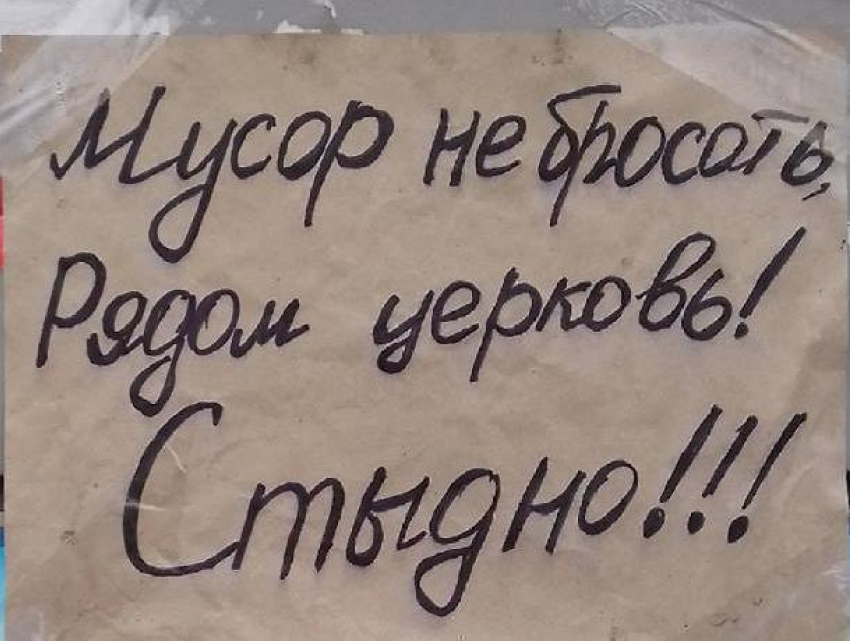 Мусор не бросать,
Рядом церковь!
Стыдно!!!